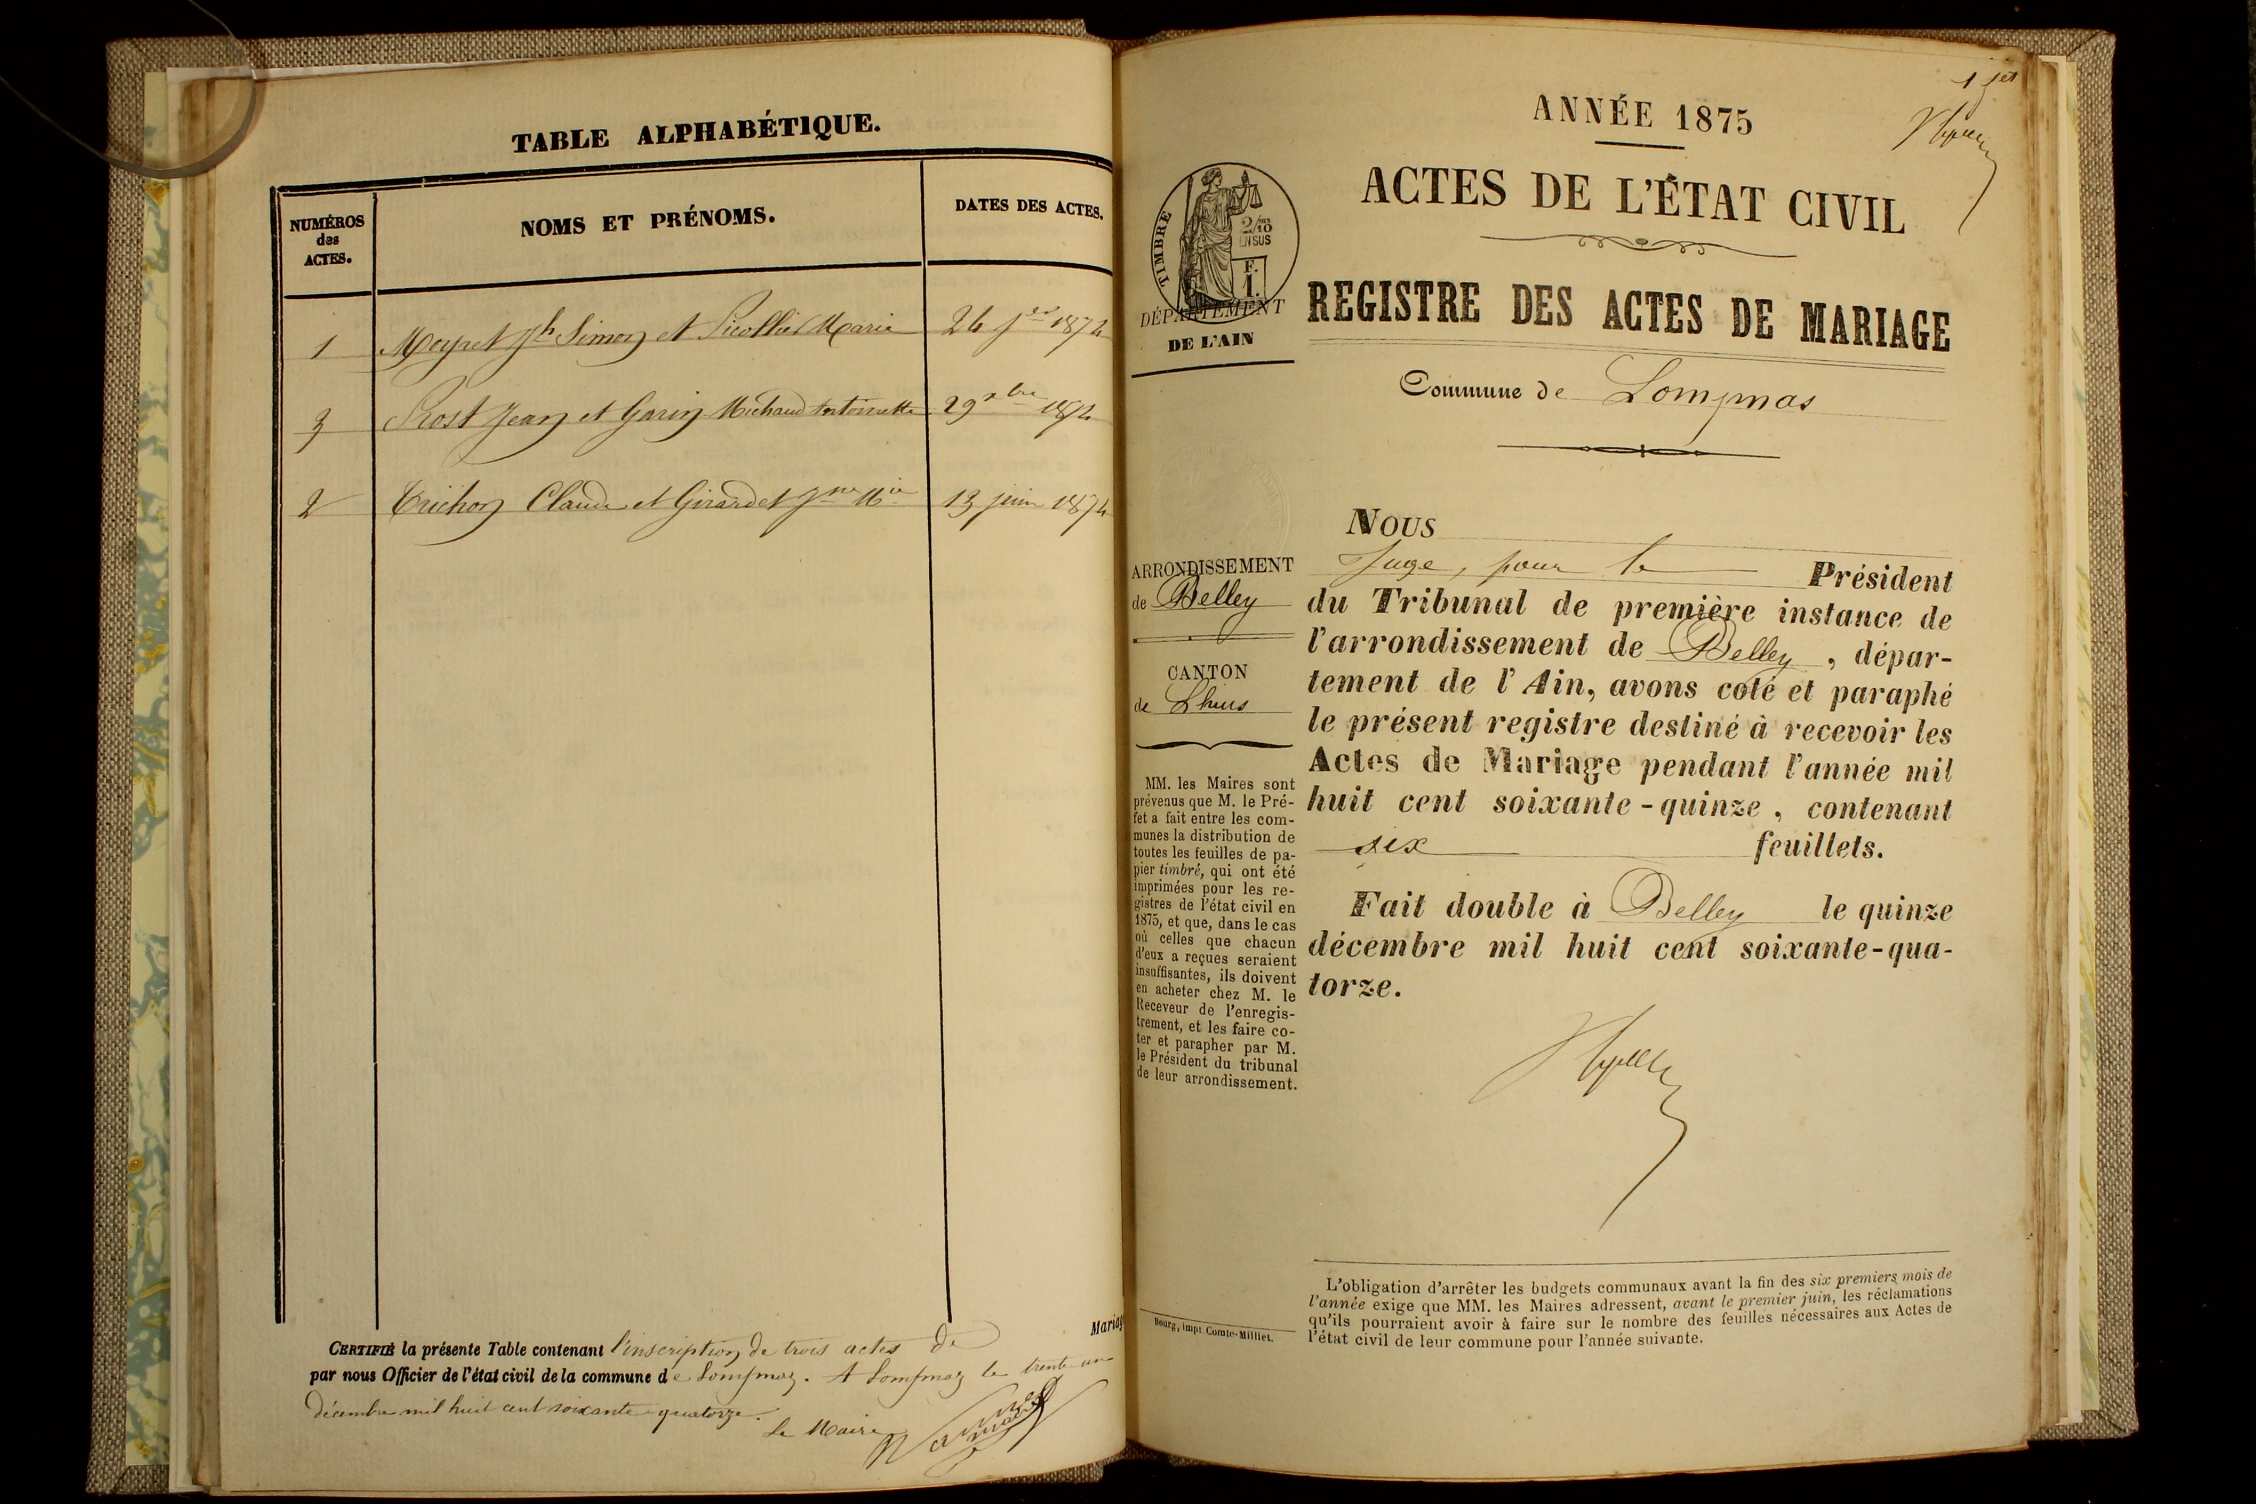 TABLE ALPHABÉTIQUE.
NUMÉROS
des
ACTES.
NOMS ET PRÉNOMS.
DATES DES ACTES.
1 Meyret Jh Simon et Picollet Marie 26 1874
3 Prost Jean et Garin Michaud Antoinette 29 1874
2 Trichon Claude et Girardet Jne Mie 13 juin 1874
Mariag
CERTIFIÉ la présente Table contenant l'inscription de trois actes de
par nous Officier de l'état civil de la commune de Lompnaz. A Lompnaz le trente un
décembre mil huit cent soixante quatorze.
Le Maire
1er
ANNÉE 1875
ACTES DE L'ÉTAT CIVIL
TIMBRE
2/10
EN SUS
F.
1.
DÉPARTEMENT
DE L'AIN
REGISTRE DES ACTES DE MARIAGE
Commune de Lompnas
ARRONDISSEMENT
de Belley
CANTON
de Lhuis
MM. les Maires sont
prévenus que M. le Pré-
fet a fait entre les com-
munes la distribution de
toutes les feuilles de pa-
pier timbré, qui ont été
imprimées pour les re-
gistres de l'état civil en
1875, et que, dans le cas
où celles que chacun
d'eux a reçues seraient
insuffisantes, ils doivent
en acheter chez M. le
Receveur de l'enregis-
trement, et les faire co-
ter et parapher par M.
le Président du tribunal
de leur arrondissement.
Bourg, imp. Comte-Milliet.
NOUS
Juge, pour le Président
du Tribunal de première instance de
l'arrondissement de Belley, dépar-
tement de l'Ain, avons coté et paraphé
le présent registre destiné à recevoir les
Actes de Mariage pendant l'année mil
huit cent soixante-quinze, contenant
six feuillets.
Fait double à Belley le quinze
décembre mil huit cent soixante-qua-
torze.
L'obligation d'arrêter les budgets communaux avant la fin des six premiers mois de
l'année exige que MM. les Maires adressent, avant le premier juin, les réclamations
qu'ils pourraient avoir à faire sur le nombre des feuilles nécessaires aux Actes de
l'état civil de leur commune pour l'année suivante.